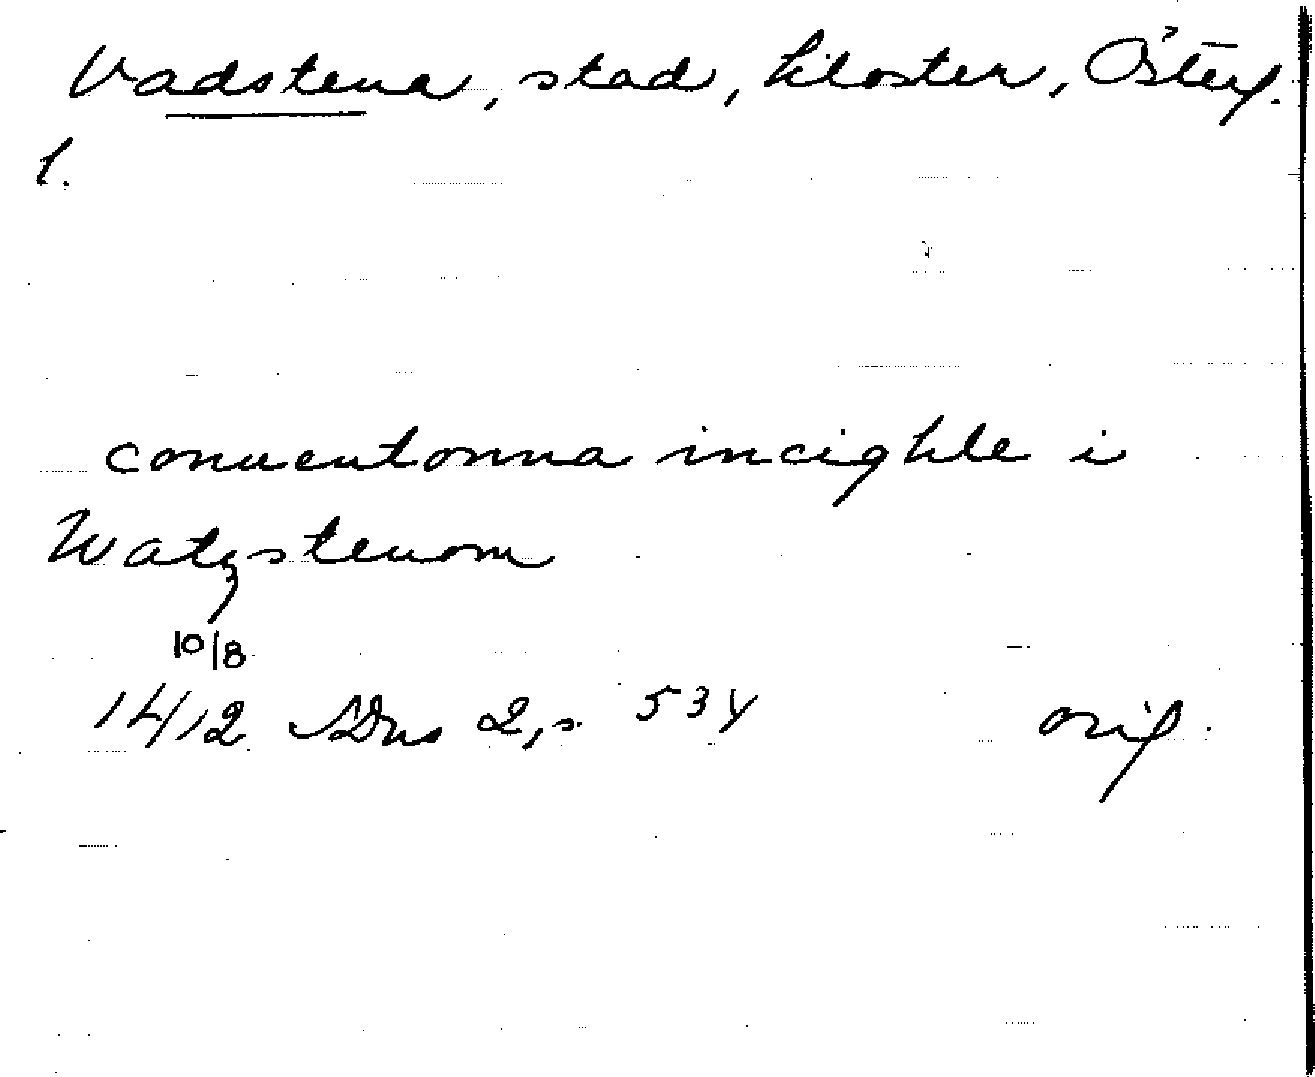 Vadstena, stad, kloster, Österg.
l.
conuentonna incighle i
Watzstenom
10/8
1412 SDns 2, s. 534 orig.